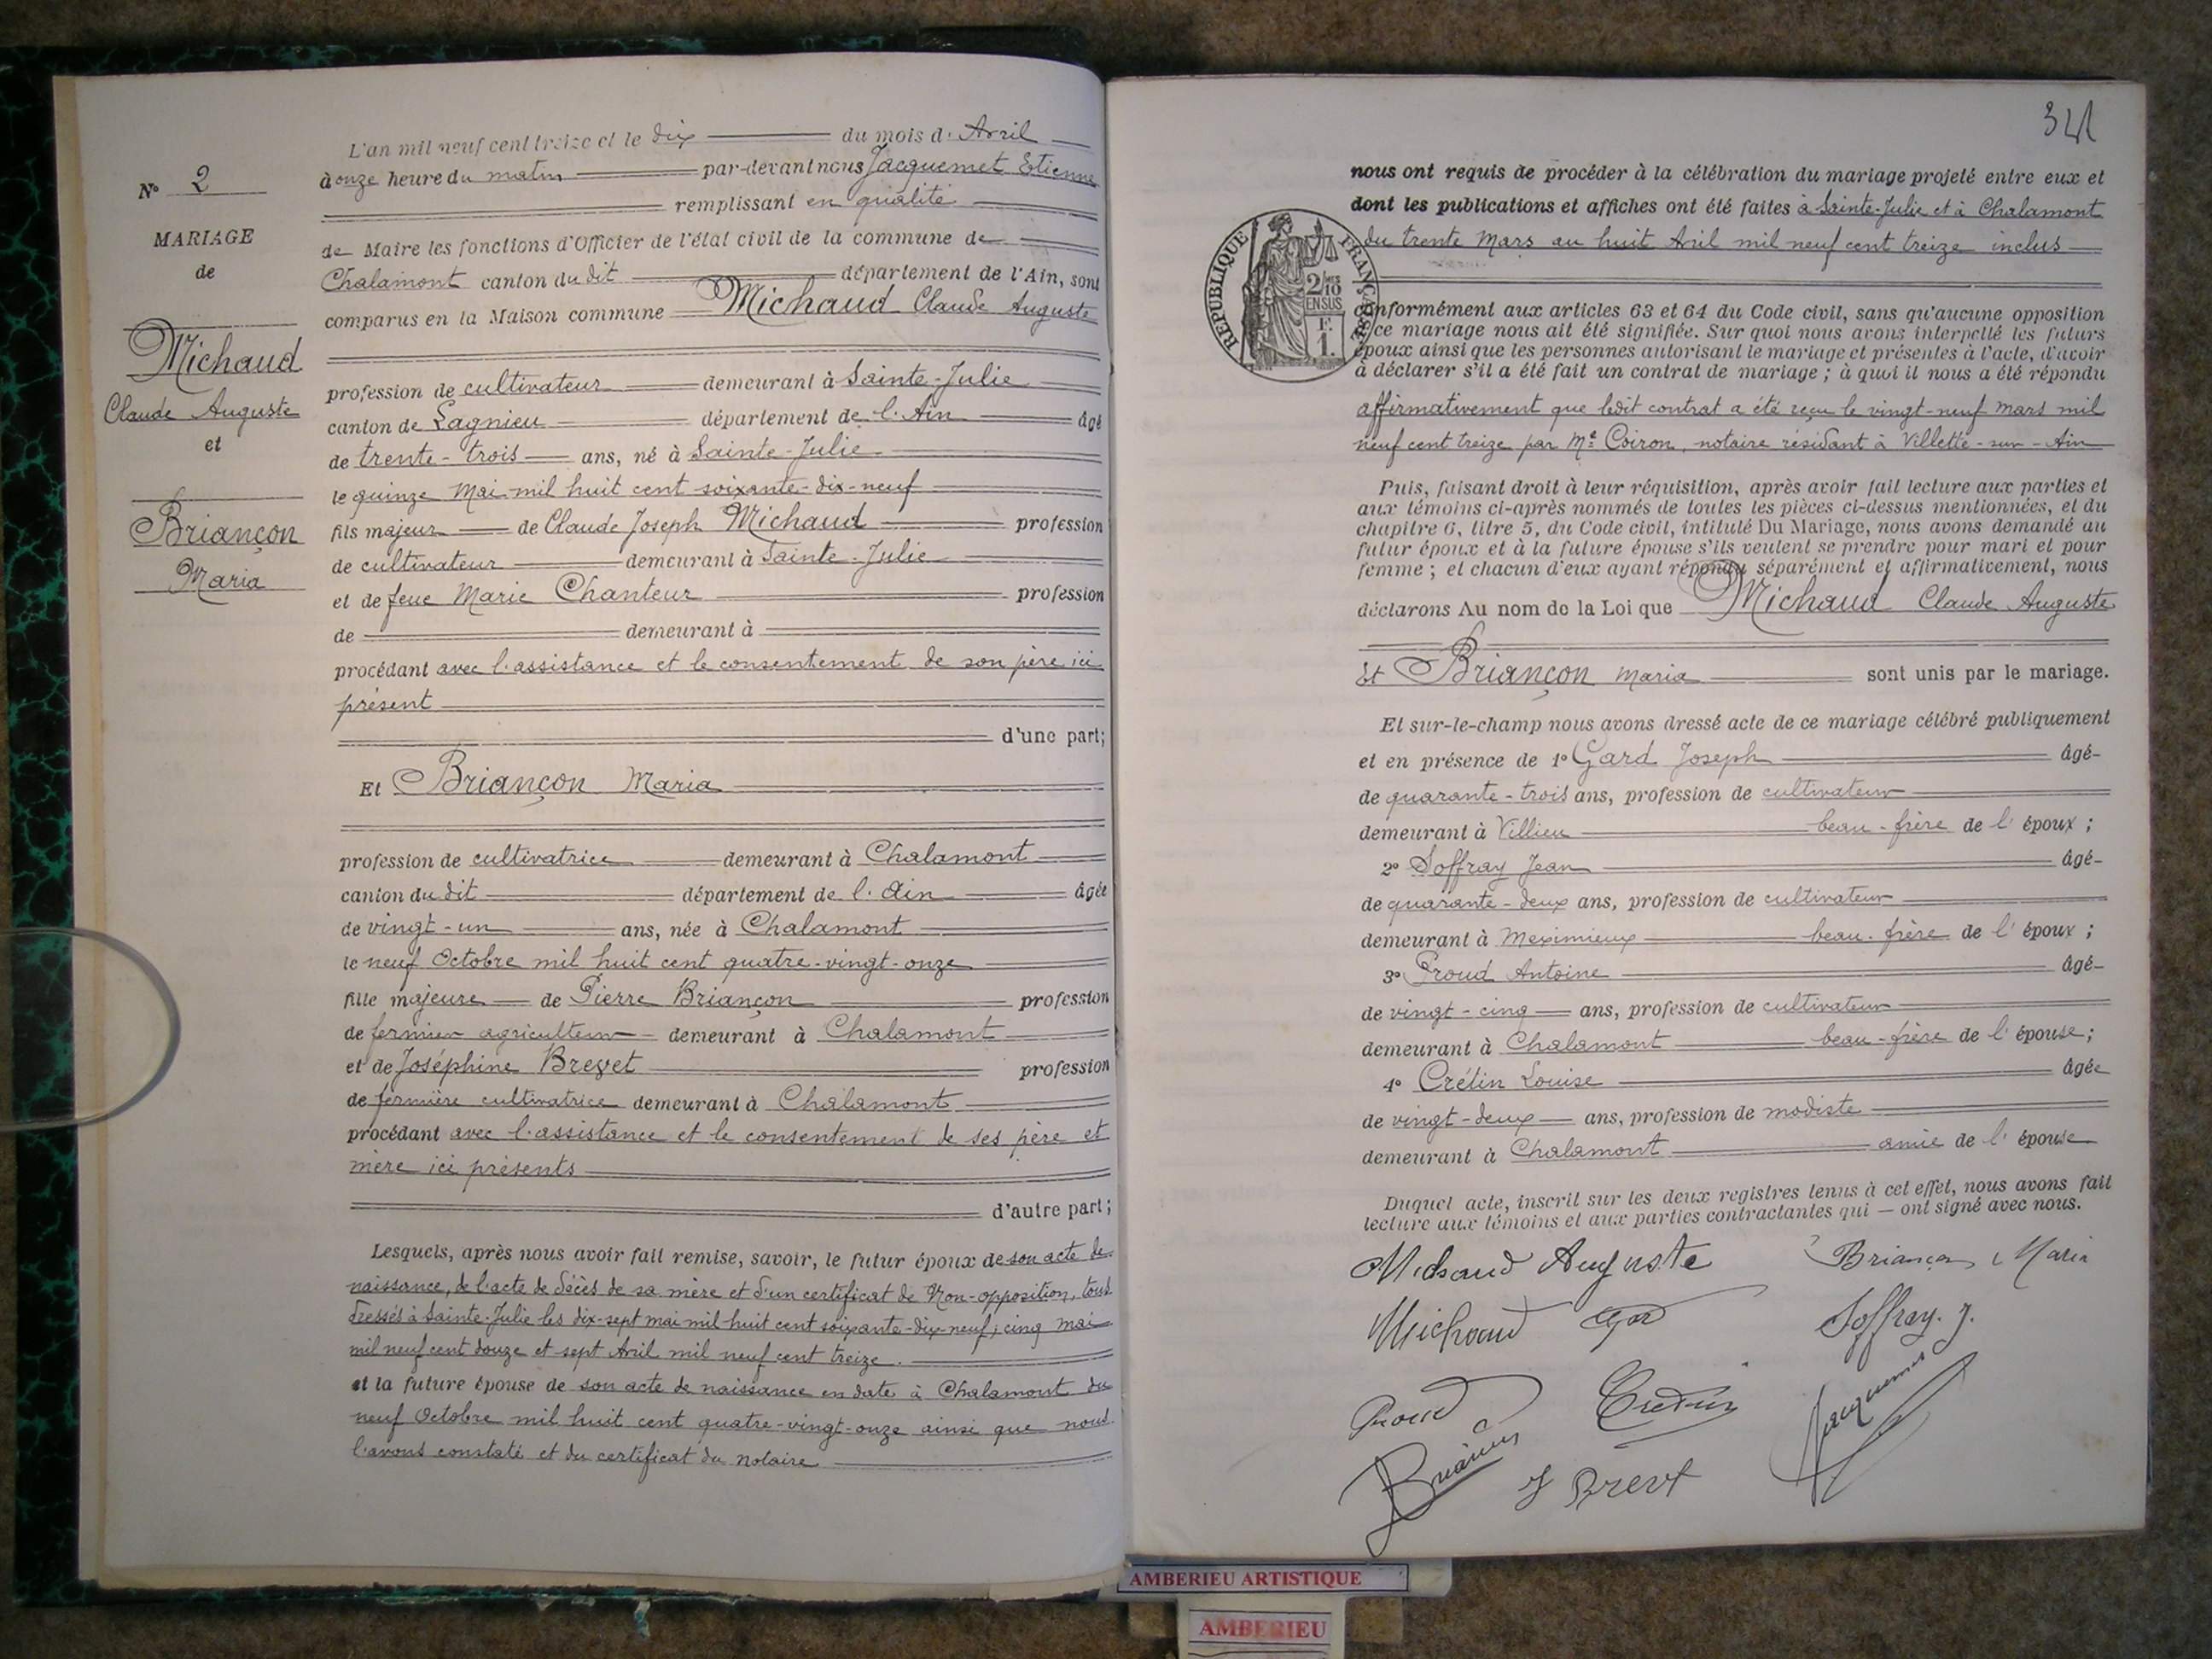 N° 2
MARIAGE
de
Michaud
Claude Auguste
et
Briançon
Maria
L'an mil neuf cent treize et le dix du mois d' Avril
à onze heure du matin par-devant nous Jacquemet Etienne
remplissant en qualité
de Maire les fonctions d'Officier de l'état civil de la commune de
Chalamont canton du dit département de l'Ain, sont
comparus en la Maison commune Michaud Claude Auguste
profession de cultivateur demeurant à Sainte-Julie
canton de Lagnieu département de l'Ain âgé
de trente-trois ans, né à Sainte-Julie
le quinze Mai mil huit cent soixante-dix-neuf
fils majeur de Claude Joseph Michaud profession
de cultivateur demeurant à Sainte-Julie
et de feue Marie Chanteur profession
de demeurant à
procédant avec l'assistance et le consentement de son père ici
présent
d'une part;
Et Briançon Maria
profession de cultivatrice demeurant à Chalamont
canton du dit département de l'Ain âgée
de vingt-un ans, née à Chalamont
le neuf Octobre mil huit cent quatre-vingt-onze
fille majeure de Pierre Briançon profession
de fermier agriculteur demeurant à Chalamont
et de Joséphine Brevet profession
de fermière cultivatrice demeurant à Chalamont
procédant avec l'assistance et le consentement de ses père et
mère ici présents
d'autre part;
Lesquels, après nous avoir fait remise, savoir, le futur époux de son acte de
naissance, de l'acte de décès de sa mère et d'un certificat de Non-opposition, tous
dressés à Sainte-Julie les dix-sept mai mil huit cent soixante-dix-neuf; cinq mai
mil neuf cent douze et sept Avril mil neuf cent treize.
et la future épouse de son acte de naissance en date à Chalamont du
neuf Octobre mil huit cent quatre-vingt-onze ainsi que nous
l'avons constaté et du certificat du notaire
341
nous ont requis de procéder à la célébration du mariage projeté entre eux et
dont les publications et affiches ont été faites à Sainte-Julie et à Chalamont
du trente Mars au huit Avril mil neuf cent treize inclus
REPUBLIQUE FRANÇAISE
2/10
EN SUS
F.
1.
conformément aux articles 63 et 64 du Code civil, sans qu'aucune opposition
à ce mariage nous ait été signifiée. Sur quoi nous avons interpellé les futurs
époux ainsi que les personnes autorisant le mariage et présentes à l'acte, d'avoir
à déclarer s'il a été fait un contrat de mariage ; à quoi il nous a été répondu
affirmativement que ledit contrat a été reçu le vingt-neuf mars mil
neuf cent treize par Me Coiron, notaire résidant à Villette-sur-Ain
Puis, faisant droit à leur réquisition, après avoir fait lecture aux parties et
aux témoins ci-après nommés de toutes les pièces ci-dessus mentionnées, et du
chapitre 6, titre 5, du Code civil, intitulé Du Mariage, nous avons demandé au
futur époux et à la future épouse s'ils veulent se prendre pour mari et pour
femme ; et chacun d'eux ayant répondu séparément et affirmativement, nous
déclarons Au nom de la Loi que Michaud Claude Auguste
Et Briançon Maria sont unis par le mariage.
Et sur-le-champ nous avons dressé acte de ce mariage célébré publiquement
et en présence de 1° Gard Joseph âgé
de quarante-trois ans, profession de cultivateur
demeurant à Villieu beau-frère de l'époux ;
2° Soffray Jean âgé
de quarante-deux ans, profession de cultivateur
demeurant à Meximieux beau-frère de l'époux ;
3° Proud Antoine âgé
de vingt-cinq ans, profession de cultivateur
demeurant à Chalamont beau-frère de l'épouse;
4° Crétin Louise âgée
de vingt-deux ans, profession de modiste
demeurant à Chalamont amie de l'épouse
Duquel acte, inscrit sur les deux registres tenus à cet effet, nous avons fait
lecture aux témoins et aux parties contractantes qui — ont signé avec nous.
Michaud Auguste Briançon Maria
Michaud Soffray. J.
Proud Cretin Jacquemet
Briançon J Brevet
AMBERIEU ARTISTIQUE
AMBERIEU